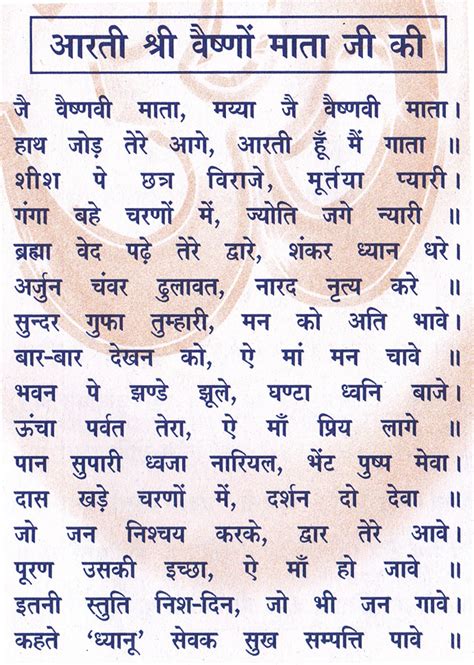 आरती श्री वैष्णों माता जी की
जै वैष्णवी माता, मय्या जै वैष्णवी माता।
हाथ जोड़ तेरे आगे, आरती हूँ मैं गाता ॥
शीश पे छत्र विराजे, मूर्तया प्यारी।
गंगा बहे चरणों में, ज्योति जगे न्यारी ॥
ब्रह्मा वेद पढ़े तेरे द्वारे, शंकर ध्यान धरे।
अर्जुन चंवर ढुलावत, नारद नृत्य करे ॥
सुन्दर गुफा तुम्हारी, मन को अति भावे।
बार-बार देखन को, ऐ मां मन चावे ॥
भवन पे झण्डे झूले, घण्टा ध्वनि बाजे।
ऊंचा पर्वत तेरा, ऐ माँ प्रिय लागे ॥
पान सुपारी ध्वजा नारियल, भेंट पुष्प मेवा।
दास खड़े चरणों में, दर्शन दो देवा ॥
जो जन निश्चय करके, द्वार तेरे आवे।
पूरण उसकी इच्छा, ऐ माँ हो जावे ॥
इतनी स्तुति निश-दिन, जो भी जन गावे।
कहते ‘ध्यानू’ सेवक सुख सम्पत्ति पावे ॥